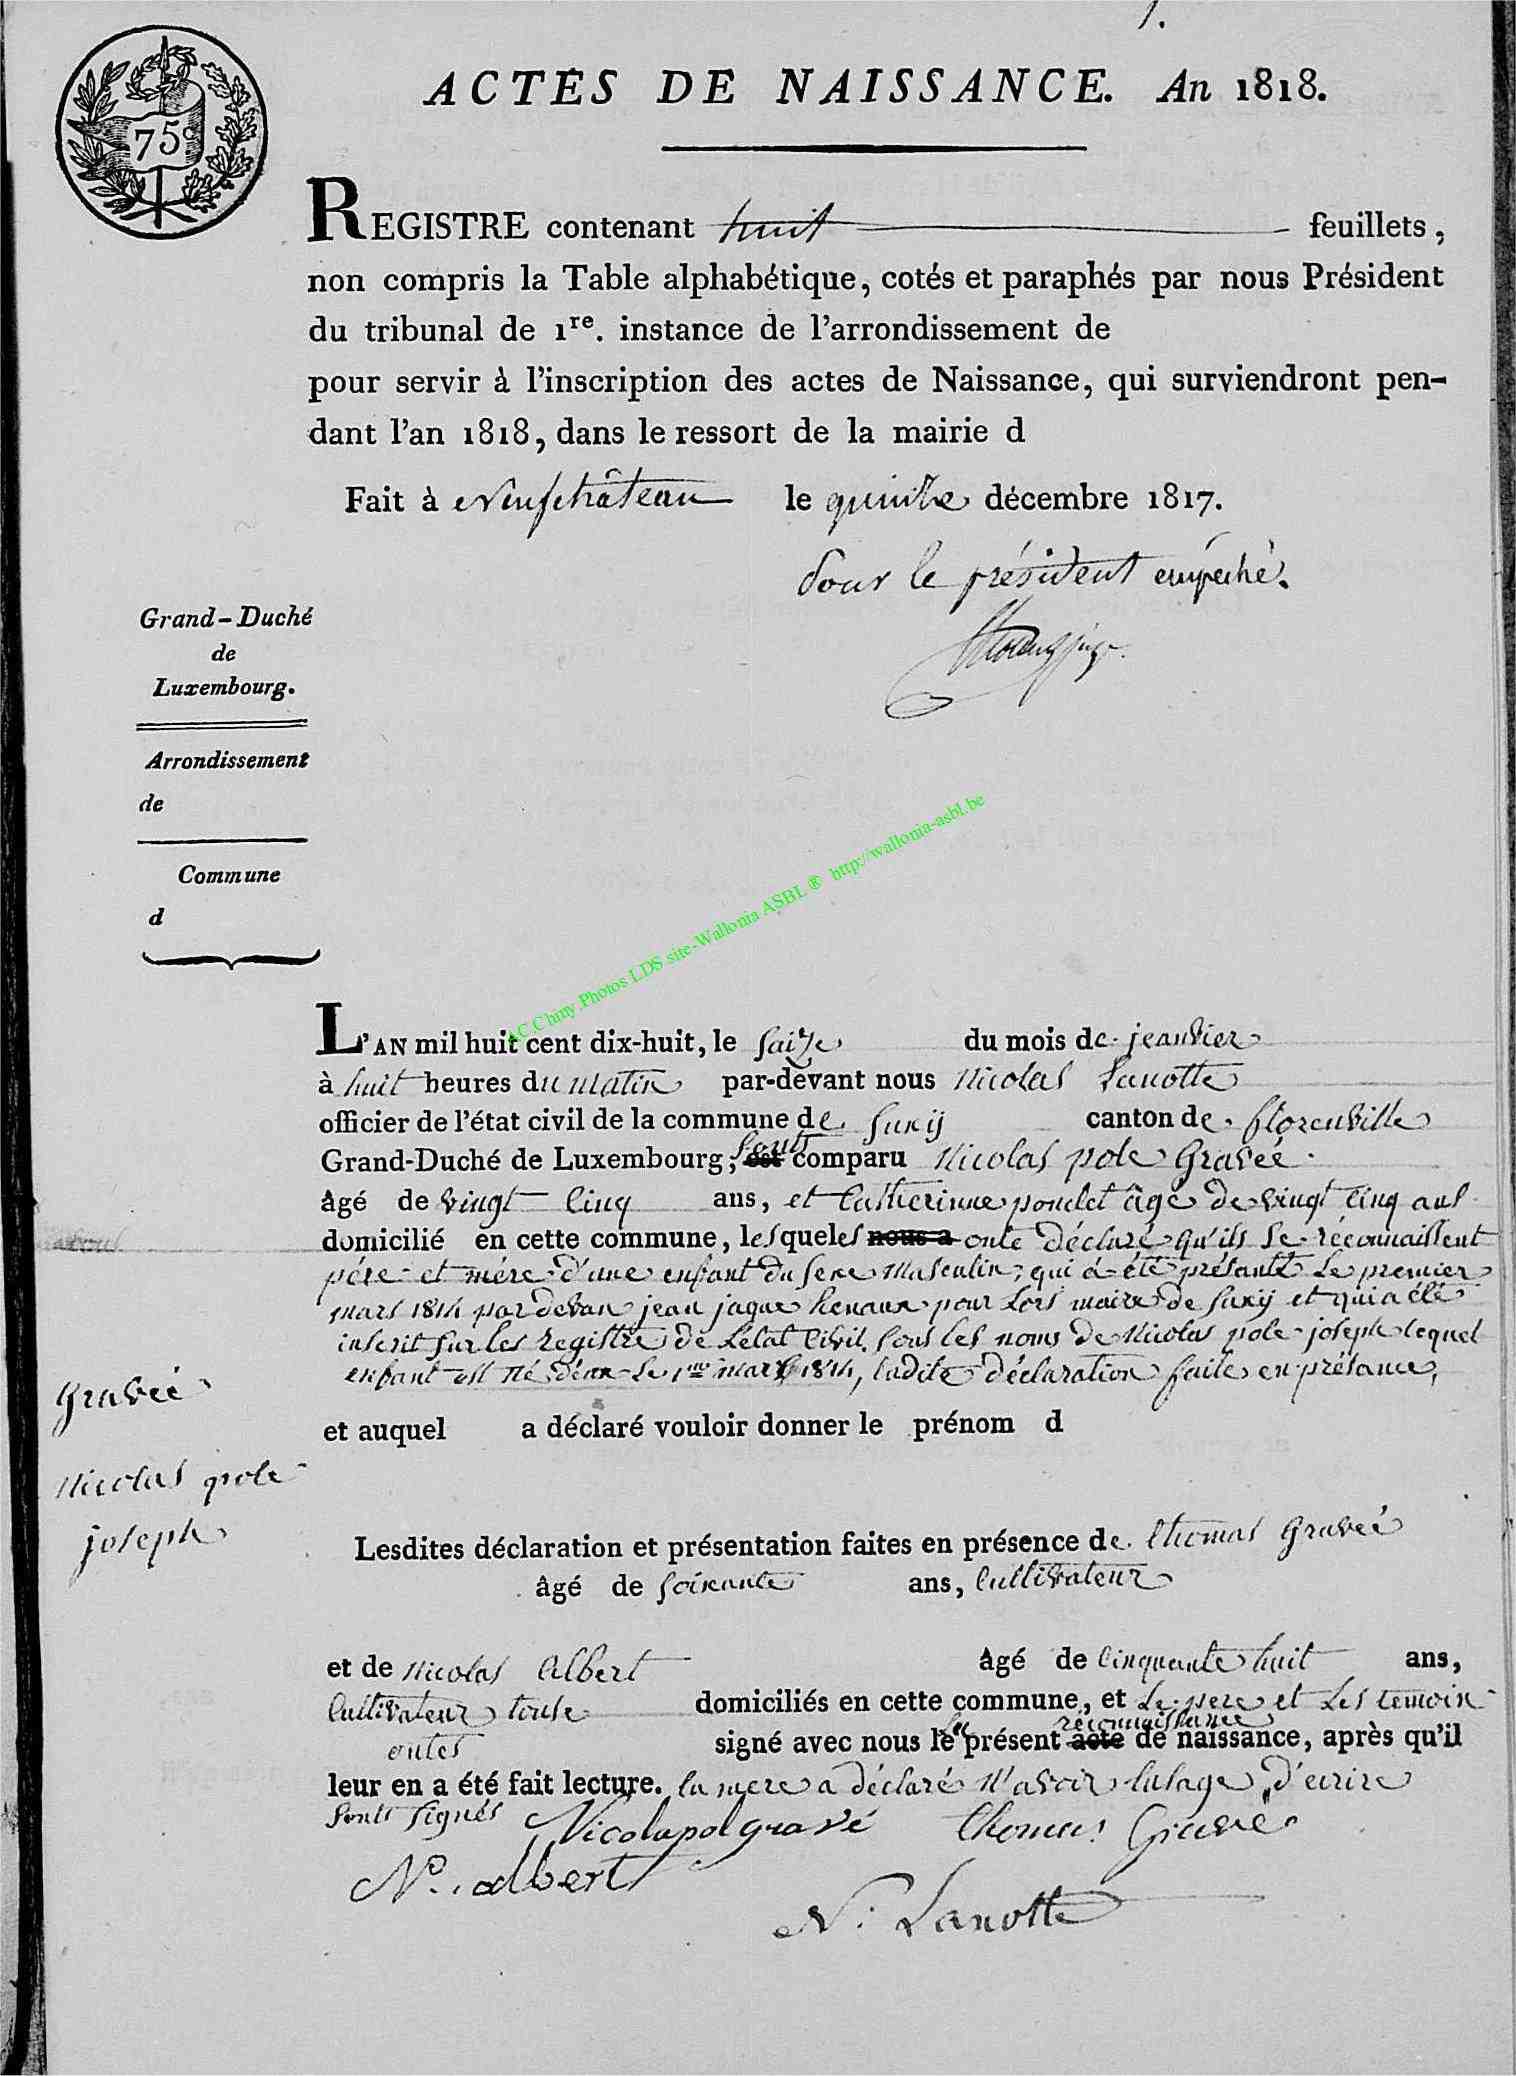 1.
ACTES DE NAISSANCE. An 1818.
75c
REGISTRE contenant huit feuillets,
non compris la Table alphabétique, cotés et paraphés par nous Président
du tribunal de 1re. instance de l'arrondissement de
pour servir à l'inscription des actes de Naissance, qui surviendront pen-
dant l'an 1818, dans le ressort de la mairie d
Fait à Neufchâteau le quinze décembre 1817.
Pour le président empêché.
Grand-Duché
de
Luxembourg.
Arrondissement
de
Commune
d
AC.Chiny.Photos LDS site-Wallonia ASBL ® http://wallonia-asbl.be
L'AN mil huit cent dix-huit, le saize du mois de jeanvier
à huit heures du matin par-devant nous Nicolas Lanotte
officier de l'état civil de la commune de Suxij canton de florenville
Grand-Duché de Luxembourg, sont est comparu Nicolas pole Graveé
âgé de vingt Cinq ans, et Catherinne poncelet âgé de vingt Cinq ans
domicilié en cette commune, lesqueles nous a onte déclaré qu'ils se réconnaissent
pére et mére d'une enfant du sexe Masculin, qui a été présanté Le premier
mars 1814 par devan jean jaque henaux pour Lors maire de Suxij et qui a été
inscrit sur les registre de L'etat Civil sous les noms de Nicolas pole joseph lequel
enfant est né Le 1er mars 1814, ladite déclaration faite en présance,
Graveé
Nicolas pole
joseph
et auquel a déclaré vouloir donner le prénom d
Lesdites déclaration et présentation faites en présence de Thomas Graveé
âgé de soixante ans, Cultivateur
et de Nicolas Albert âgé de Cinquante huit ans,
Cultivateur touse domiciliés en cette commune, et Le pere et Les temoin
ontes signé avec nous le La présent acte réconnaissance de naissance, après qu'il
leur en a été fait lecture. la mere a déclaré n'avoir lusage d'ecrire
sont signés Nicolapol gravé thomas Gravé
N. albert
N. Lanotte